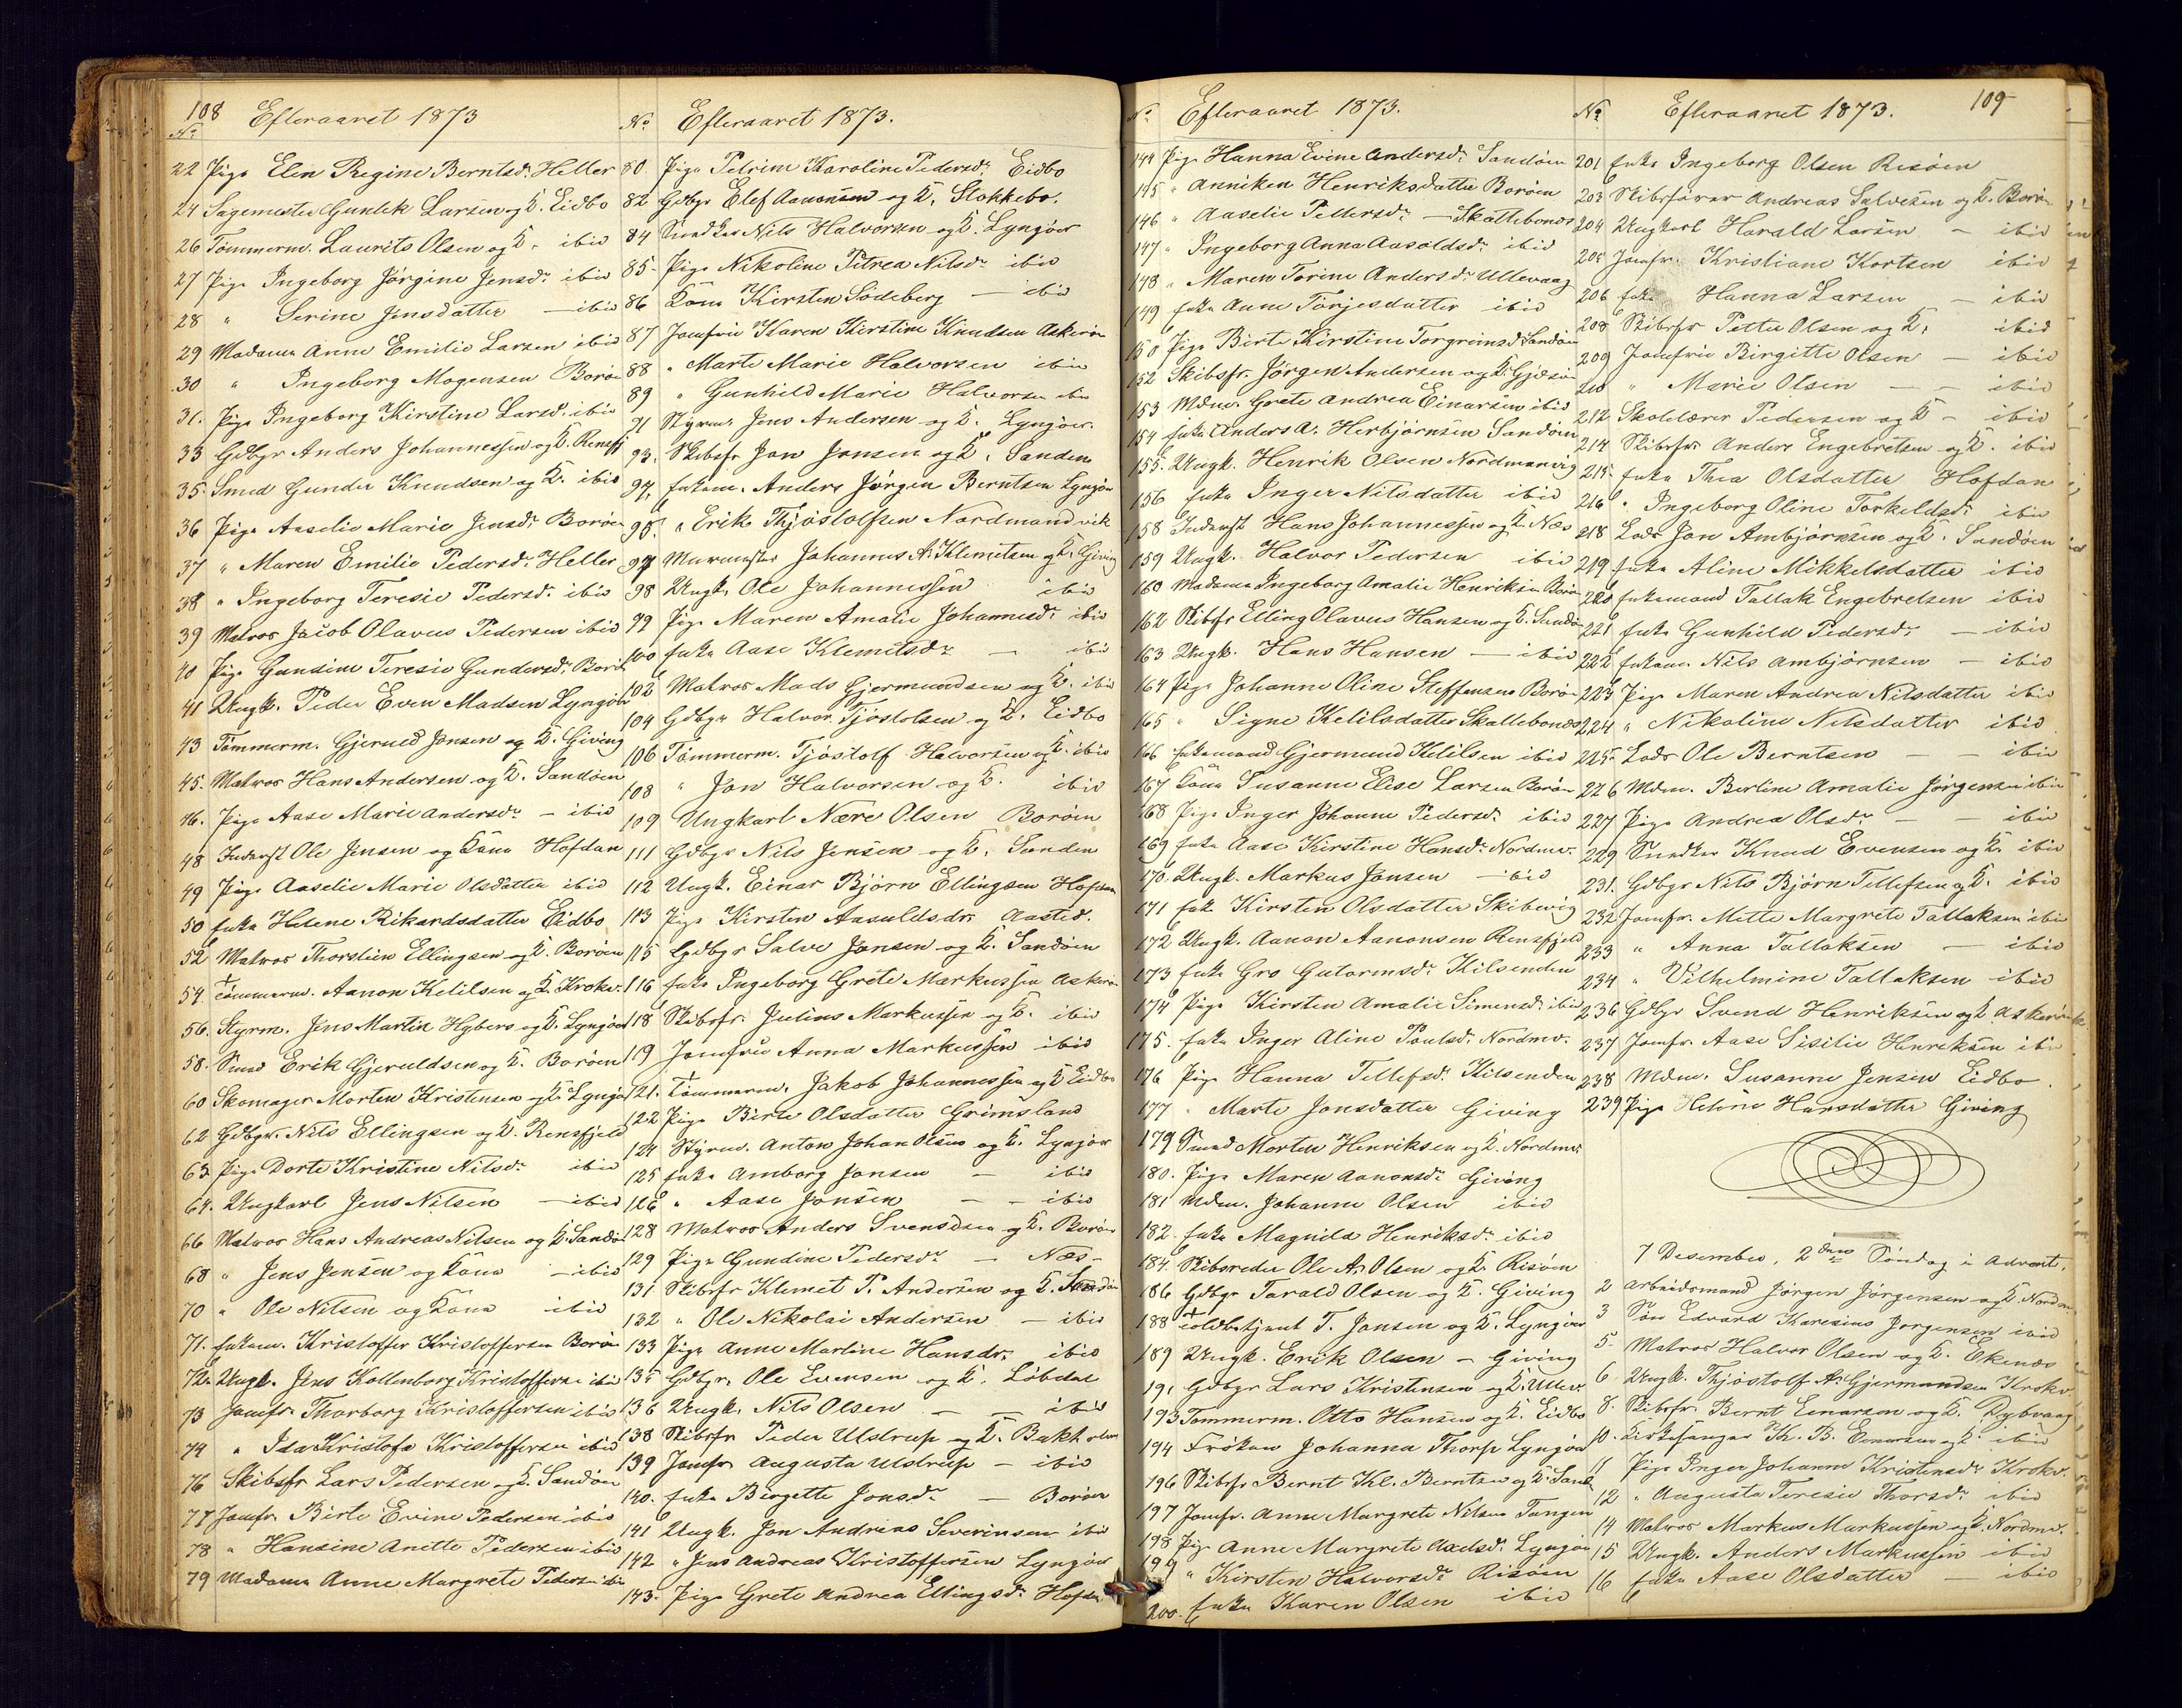 108
No Efteraaret 1873
22 Pige Elen Regine Berntsdr. Heller
24 Sagemester Gunlek Larsen og K. Eidbo
26 Tömmerm. Laurits Olsen og K. ibid
27 Pige Ingeborg Jørgine Jensdr. ibid
28 " Serine Jensdatter — ibid
29 Madama Anne Emilie Larsen ibid
30 " Ingeborg Mogensen Borøen
31. Pige Ingeborg Kirstine Larsdr. ibid
33 Gdbgr Anders Johannessen og K. Rensfj
35. Smed Gunder Knudsen og K. ibid
36 Pige Aaselie Marie Jensdr. Borøen
37 " Maren Emilie Pedersdr. Heller
38 " Ingeborg Teresie Pedersdr. ibid
39 Matros Jacob Olavus Pedersen ibid
40 Pige Gunsine Teresie Gundersdr. Borø
41 Ungk. Peder Even Madsen Lyngøer
43 Tömmerm. Gjerued Jonsen og K. Giving
45. Matros Hans Andersen og K. Sandøen
46. Pige Aase Marie Andersdr. — ibid
48 Inderst Ole Jensen og Kona Hofdan
49 Pige Aaselie Marie Olsdatter ibid
50 Enke Helene Rikardsdatter Eidbo
52 Matros Thorstein Ellingsen og K. Borøen
54. Tömmerm. Aanon Kelilsen og K. Krokv.
56. Styrm. Jens Martin Nybero og K. Lyngøer
58. Smed Erik Gjeruldsen og K. Borøen
60 Skomager Morten Kristensen og K. Lyngø
62 Gdbgr. Nils Ellingsen og K. Rensfjeld
63 Pige Dorte Kristine Nilsdr. ibid
64. Ungkarl Jens Nilsen — ibid
66 Matros Hans Andreas Nilsen og K. Sandø
68 " Jens Jensen og Kona — ibid
70 " Ole Nilsen og Kona ibid
71. Enkem. Kristoffer Kristoffersen Borøn
72. Ungk. Jens Kollenborg Kristoffersen ibid
73 Jomfr. Thorborg Kristoffersen ibid
74 " Ida Kristofa Kristoffersen ibid
76 Skibsfr Lars Pedersen og K. Sandøen
77 Jomfr. Birte Evine Pedersen ibid
78 " Hansine Anette Pedersen ibid
79 Madama Anne Margrete Pedersen ibid
No Efteraaret 1873.
80. Pige Petrine Karoline Pedersdr. Eidbo
82 Gdbgr Elef Aanonsen og K. Stokkebo.
84 Snedker Nils Halvorsen og K. Lyngøer
85. Pige Nikoline Petrea Nilsdr. ibid
86 Kona Kirsten Södeberg — ibid
87 Jomfrue Karen Kirstine Knudsen Askerøn
88 " Marte Marie Halvorsen ibid
89 " Gunhild Marie Halvorsen ibid
91 Styrm. Jens Andersen og K. Lyngøer.
93. Skibsfr Jon Jonsen og K. Sanden
94. Enkem. Anders Jørgen Berntsen Lyngør
95. " Erik Thjøstolfsen Nordmandvik
97 Murmester Johannes A. Klemetsen og K. Giving
98 Ungk. Ole Johannessen ibid
99 Pige Maren Amalie Johannesdr. ibid
100 Enke Aase Klemetsdr. — ibid
102 Matros Mads Gjermundsen og K. ibid
104 Gdbgr Halvor Tjøstolsen og K. Eidbo
106 Tömmerm. Tjøstolf Halvorsen og K. ibid
108 " Jon Halvorsen og K. ibid
109 Ungkarl Nære Olsen Borøen
111 Gdbgr Nils Jensen og K. Sanden
112 Ungk. Einar Bjørn Ellingsen Hofdan
113 Pige Kirsten Aasuldsdr. Aasted.
115 Gdbgr Salve Jonsen og K. Sandøen
116 Enke Ingeborg Grete Markussen Askerø
118 Skibsfr. Julius Markussen og K. ibid
119 Jomfrue Anna Markussen ibid
121. Tömmerm. Jakob Johannessen og K Eidbo
122 Pige Birte Olsdatter Grimsland
124 Styrm. Anton Johan Olsen og K. Lyngør
125 Enke Amborg Jonsen — ibid
126 " Aase Jonsen — — ibid
128 Matros Anders Svensdsen og K. Borøn
129 Pige Gundine Pedersdr. — Næs
131 Skibsfr Klemet P. Andersen og K. Sandøn
132 " Ole Nikolai Andersen — ibid
133 Pige Anne Martine Hansdr. ibid
135 Gdbgr. Ole Evensen og K. Løbdal
136 Ungk. Nils Olsen — — ibid
138 Skibsfr Peder Ulstrup og K. Bakholm
139 Jomfr Augusta Ulstrup — ibid
140. Enke Birgette Jonsdr. — Borøen
141 Ungk. Jon Andreas Severinsen ibid
142 " Jens Andreas Kristoffersen Lyngør
143. Pige Grete Andrea Ellingsdr. Hofda
No Efteraaret 1873.
144 Pige Hanna Evine Andersdr. Sandøen
145 " Anniken Henriksdatter Borøen
146 " Aaselie Pettersdr. — Skattebonæs
147 " Ingeborg Anna Aasoldsdr. ibid
148 " Maren Torine Andersdr. Ullevaag
149 Enke Anne Torjesdatter ibid
150 Pige Birte Kirstine Torgrimsdr Sandøn
152 Skibsfr. Jørgen Andersen og K. Gjæsøn
153 Mdm. Grete Andrea Einarsen ibid
154 Enke Anders A. Herbjørnsen Sandøen
155. Ungk. Henrik Olsen Nordmanvig
156 Enke Inger Nilsdatter ibid
158 Inderst Hans Johannessen og K. Næs
159 Ungk. Halvor Pedersen ibid
160 Madama Ingeborg Amalie Henriksen Borø
162 Skibsfr Elling Olavus Hansen og K. Sandø
163 Ungk. Hans Hansen — ibid
164 Pige Johanne Oline Steffensen Borøn
165 " Signe Kelilsdatter Skattebonæs
166 Enkemand Gjermund Kelilsen ibid
167 Kona Susanne Elise Larsen Borøn
168 Pige Inger Johanne Pedersdr. ibid
169 Enke Aase Kirstine Hansdr. Nordmv.
170. Ungk. Markus Jonsen — ibid
171 Enk. Kirsten Olsdatter Skibevig
172 Ungk. Aanon Aanonsen Rensfjeld
173 Enke Gro Gutormsdr. Kilsenden
174 Pige Kirsten Amalie Simensdr. ibid
175. Enke Inger Aline Poulsdr. Nordmv.
176 Pige Hanna Tellefsdr. Kilsenden
177 " Marte Jonsdatter Giving
179 Smed Morten Henriksen og K. Nordmv.
180. Pige Maren Aanonsdr. Giving
181 Mdm. Johanne Olsen ibid
182. Enke Magnild Henriksdr. ibid
184. Skibsreder Ole A. Olsen og K. Risøen
186 Gdbgr Tarald Olsen og K. Giving
188 Toldbetjent T. Jonsen og K. Lyngøer
189 Ungk. Erik Olsen — Giving
191 Gdbgr Lars Kristensen og K. Ullev.
193 Tommerm. Otto Hansen og K. Eidbo
194 Frøken Johanna Thorp Lyngøer
196 Skibsfr Bernt Kl. Berntsen og K. Sand
197 Jomfr. Anne Margrete Nilsen Tangen
198 Pig Anne Margrete Axelsdr. Lyngøn
199 " Kirsten Halvorsdr. Risøen
200. Enke Karen Olsen ibid
No Efteraaret 1873. 109
201 Enke Ingeborg Olsen Risøen
203 Skibsfører Andreas Salvesen og K. Borøn
204 Ungkarl Harald Larsen — ibid
205 Jomfr. Kristiane Kortsen ibid
206 Enke Hanna Larsen — ibid
208 Skibsfr Petter Olsen og K. ibid
209 Jomfrue Birgitte Olsen — ibid
210 " Marie Olsen — — ibid
212 Skolelærer Pedersen og K — ibid
214 Skibsfr. Anders Engebretsen og K. ibid
215. Enke Thea Olsdatter Hofdan
216 " Ingeborg Oline Torkeldsdr. ibid
218 Lods Jon Ambjørnsen og K. Sandøen
219 Enke Aline Mikkelsdatter ibid
220 Enkemand Tallak Engebretsen ibid
221 Enke Gunhild Pedersdr. — ibid
222 Enkem. Nils Ambjørnsen — ibid
223 Pige Maren Andrea Nilsdatter ibid
224 " Nikoline Nilsdatter ibid
225. Lods Ole Berntsen — ibid
226 Mdm. Berline Amalie Jørgensen ibid
227 Pige Andrea Olsdr. — — ibid
229 Snedker Knud Evensen og K. ibid
231. Gdbgr Nils Bjørn Tellefsen og K. ibid
232 Jomfr. Mette Margrete Tallaksen ibid
233 " Anna Tallaksen — ibid
234 " Vilhelmine Tallaksen ibid
236 Gdbgr Svend Henriksen og K. Askerøn
237 Jomfr. Aase Sisilie Henriksen ibid
238 Mdm. Susanne Jensen Eidbo.
239 Pige Helene Hansdatter Giving
7 Desember, 2den Søndag i Advent.
2 Arbeidsmand Jørgen Jørgensen og K. Nordm
3 Søn Edvard Karesius Jørgensen ibid
5. Matros Halvor Olsen og K. Ekenæs
6 Ungk. Thjøstolf A. Gjermundsen Krokv.
8. Skibsfr. Bernt Einarsen og K. Dybvaag
10. Kirkesanger K. B. Einarsen og K. ibid
11 Pige Inger Johanne Kristensdr. Krokv.
12 " Augusta Teresie Thorsdr. ibid
14 Matros Markus Markussen og K. Nordmv.
15 Ungk. Anders Markussen ibid
16 Enke Aase Olsdatter — ibid